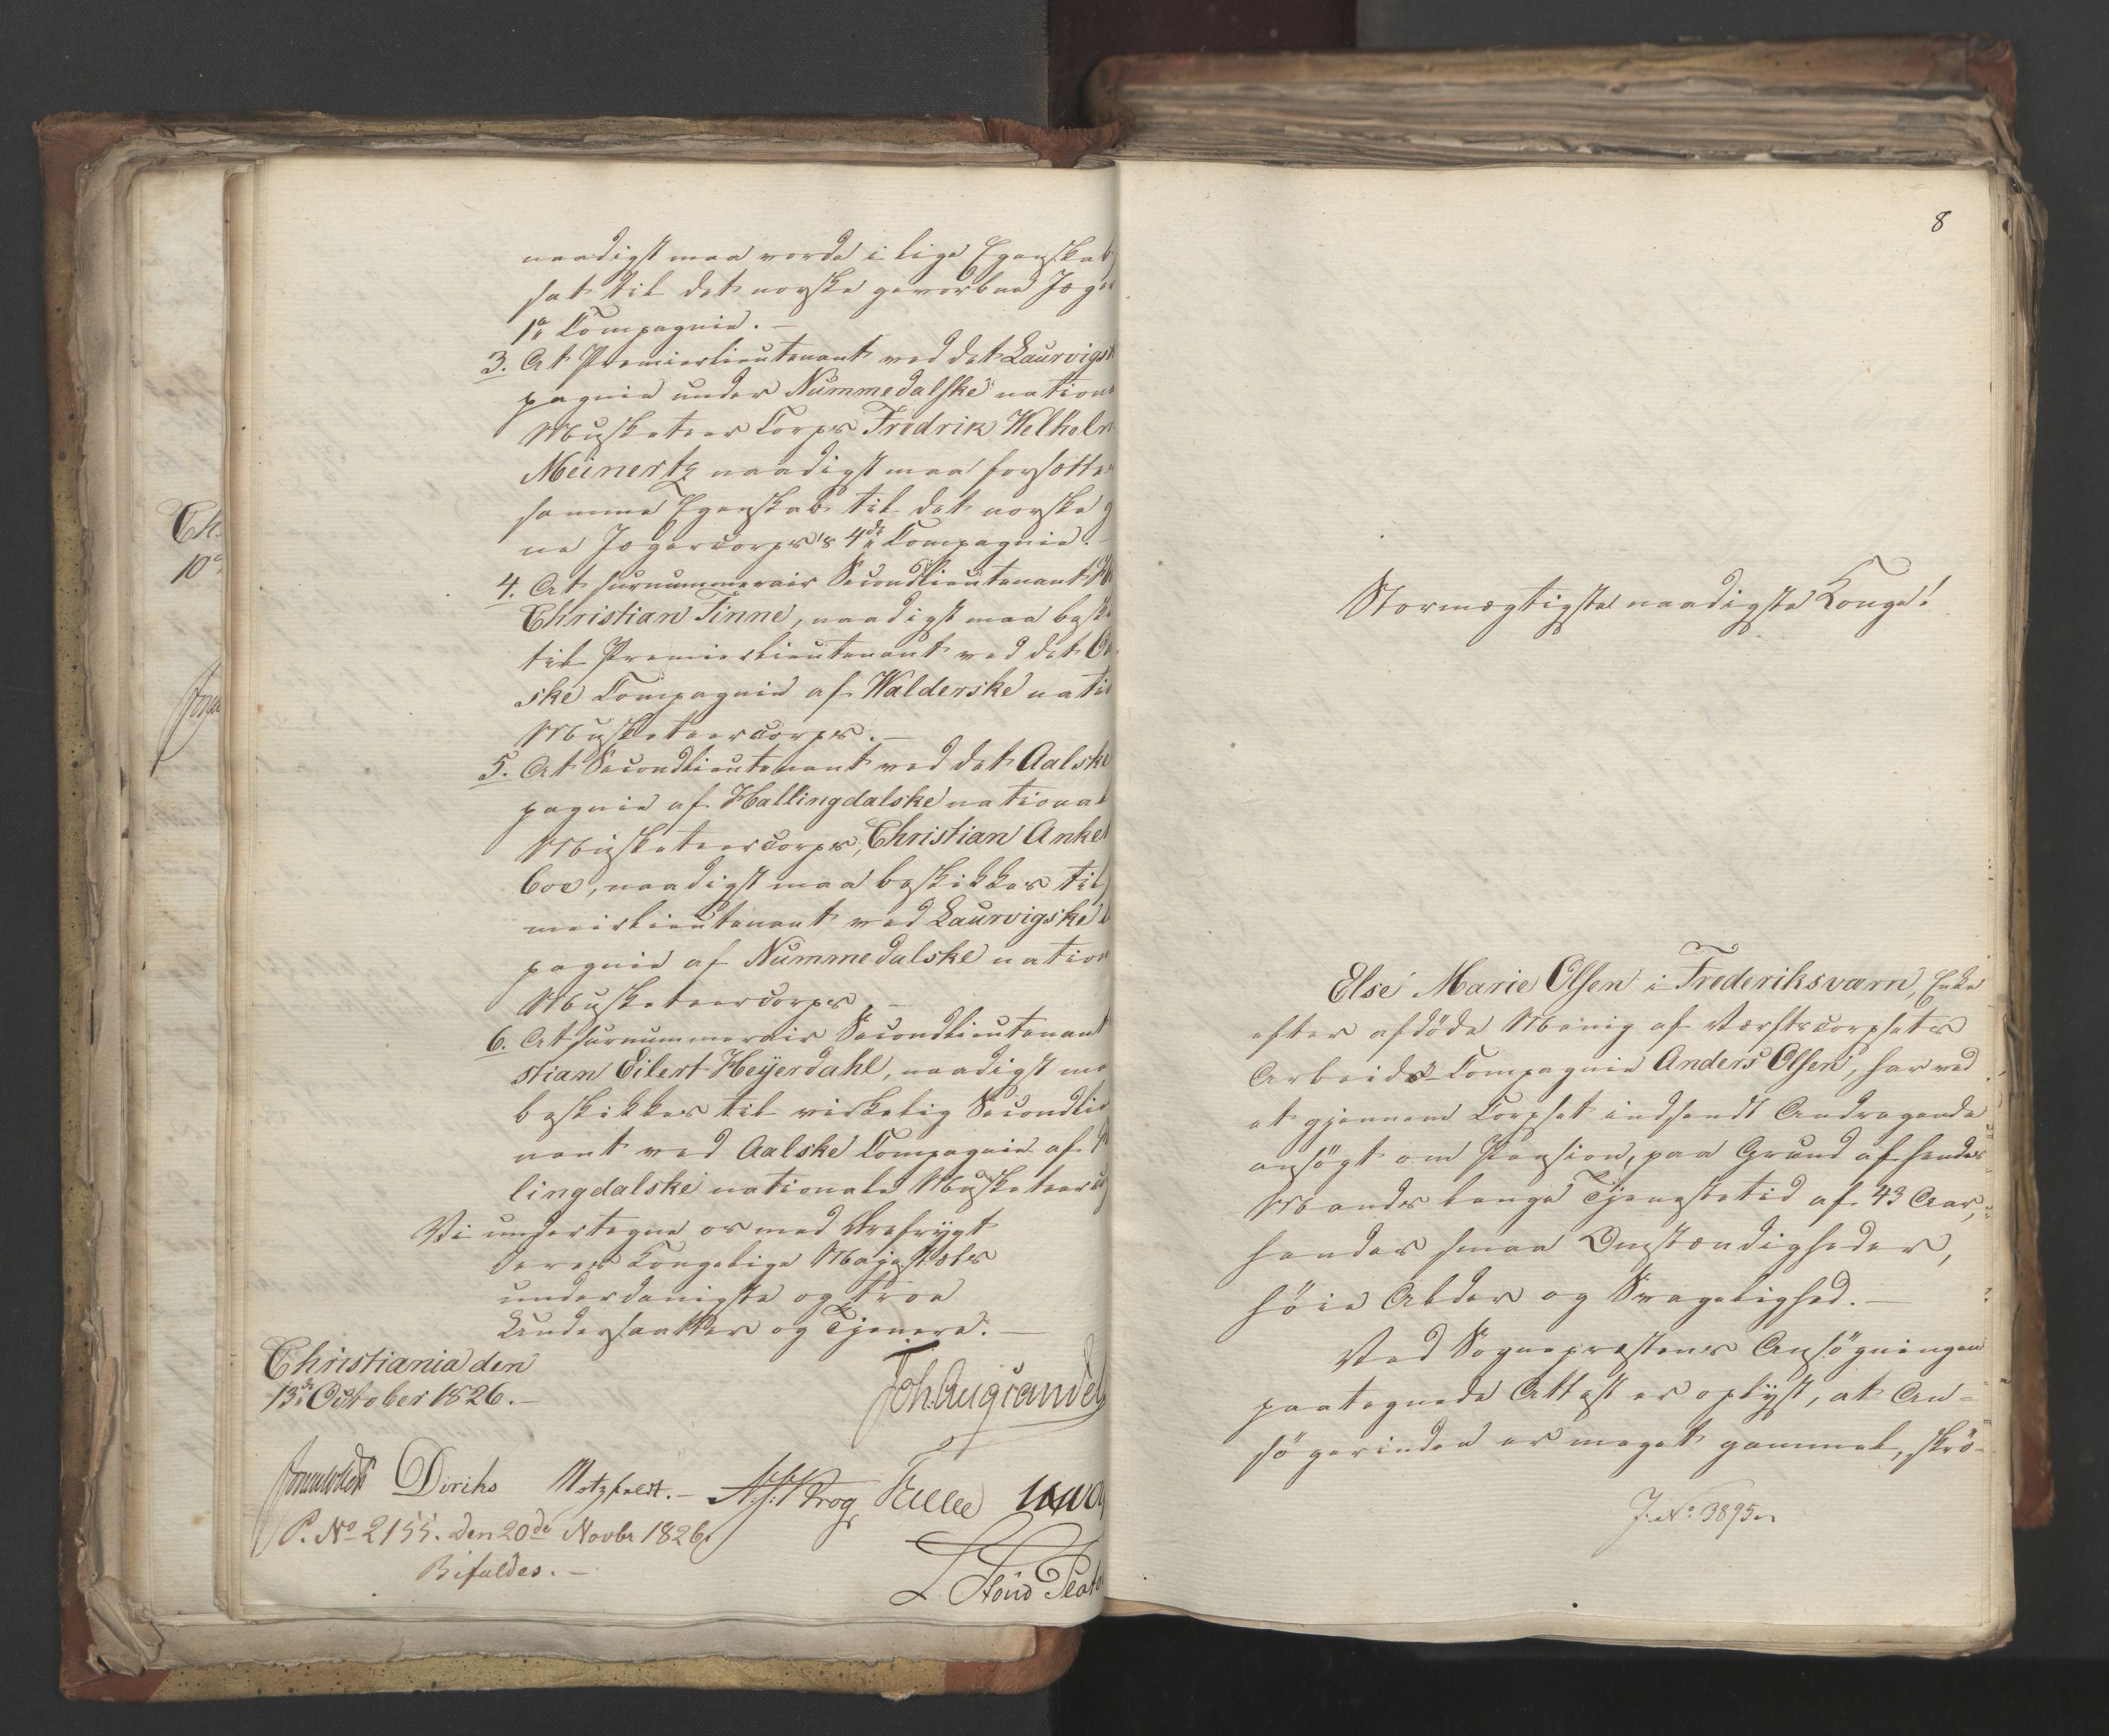 naadigst maa vorde i lige Egenskab
sat til det norske gevorbne Jæge
1e Compagnie. —
3. At Premierlieutenant ved det Laurvigsk
pagnie under Nummedalske nation
Musketeer Corps Fredrik Wilhelm
Meinertz naadigst maa forsættes
samme Egenskab til det norske g
ne Jægercorps's 4de Compagnie. —
4. At surnummerair Secondlieutenant
Christian Tinne, naadigst maa besk
til Premierlieutenant ved det
ske Compagnie af Walderske natio
Musketeercorps. —
5. At Secondlieutenant ved det Aalske
pagnie af Hallingdalske national
Musketeercorps, Christian Anker
naadigst maa beskikkes til
mierlieutenant ved Laurvigske
pagnie af Nummedalske nation
Musketeercorps. —
6. At surnummerair Secondlieutenant
stian Eilert Heyerdahl, naadigst ma
beskikkes til virkelig Secondlie
nant ved Aalske Compagnie af
lingdalske nationale Musketeerco
Vi undertegne os med Ærefrygt
Deres Kongelige Majestæts
underdanigste og troe
Undersaatter og Tjenere. —
Christiania den
13de October 1826. —
Joh. Aug Sandels
Diriks Motzfeldt. —
P. No 2155. den 20de Novbr 1826.
Bifaldes. —
8
Stormægtigste naadigste Konge!
Else Marie Olsen i Frederiksværn, Enke
efter afdøde Menig af Værftscorpsets
Arbeids-Compagnie Anders Olsen, har ved
et gjennem Corpset indsendt Andragende
ansøgt om Pension, paa Grund af hendes
Mands lange Tjenestetid af 43 Aar,
hendes smaa Omstændigheder,
høie Alder og Svagelighed. —
Ved Sognepræstens Ansøgningen
paategnede Attest er oplyst, at An-
søgerinden er meget gammel, skrø-
J. No 3895